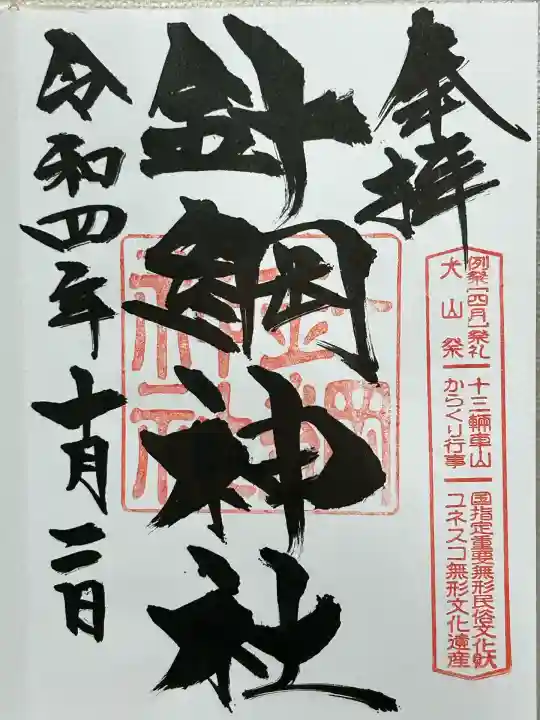 奉拝
例祭[四月]祭礼
犬山祭
十三輛車山
からくり行事
国指定重要無形民俗文化財
ユネスコ無形文化遺産
針綱神社
針綱神社
令和四年十月二日